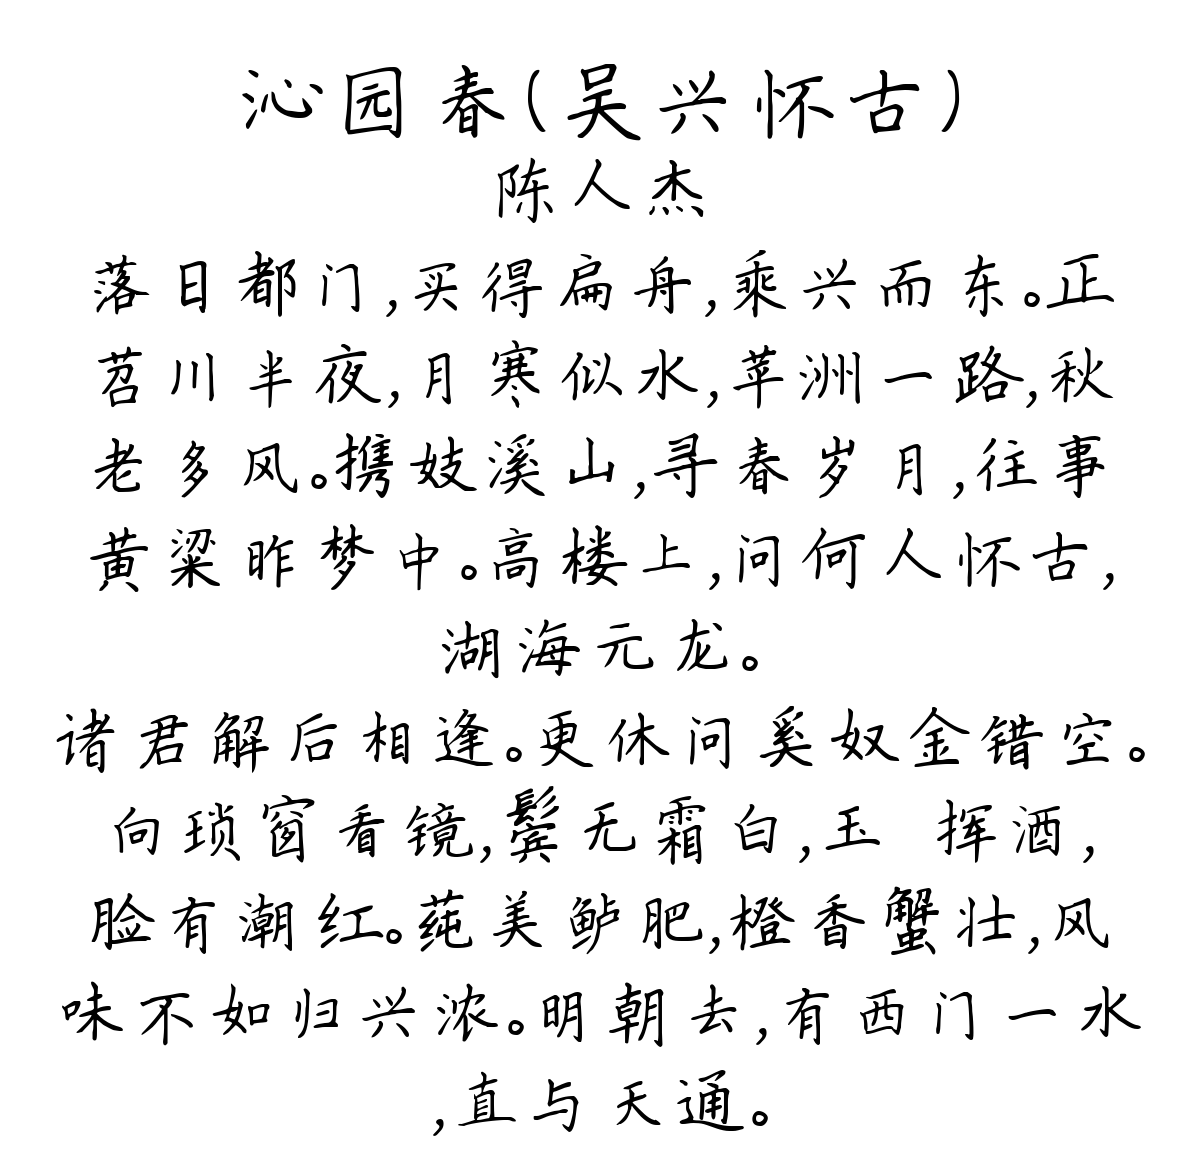 沁园春(吴兴怀古)
陈人杰
落日都门,买得扁舟,乘兴而东。正
苕川半夜,月寒似水,苹洲一路,秋
老多风。携妓溪山,寻春岁月,往事
黄粱昨梦中。高楼上,问何人怀古,
湖海元龙。
诸君解后相逢。更休问奚奴金错空。
向琐窗看镜,鬓无霜白,玉 挥酒,
脸有潮红。莼美鲈肥,橙香蟹壮,风
味不如归兴浓。明朝去,有西门一水
,直与天通。